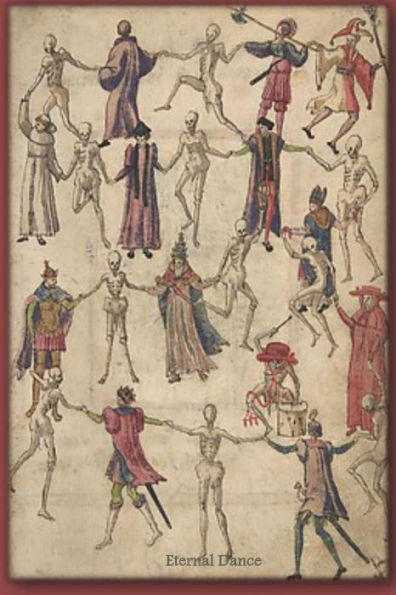 Eternal Dance